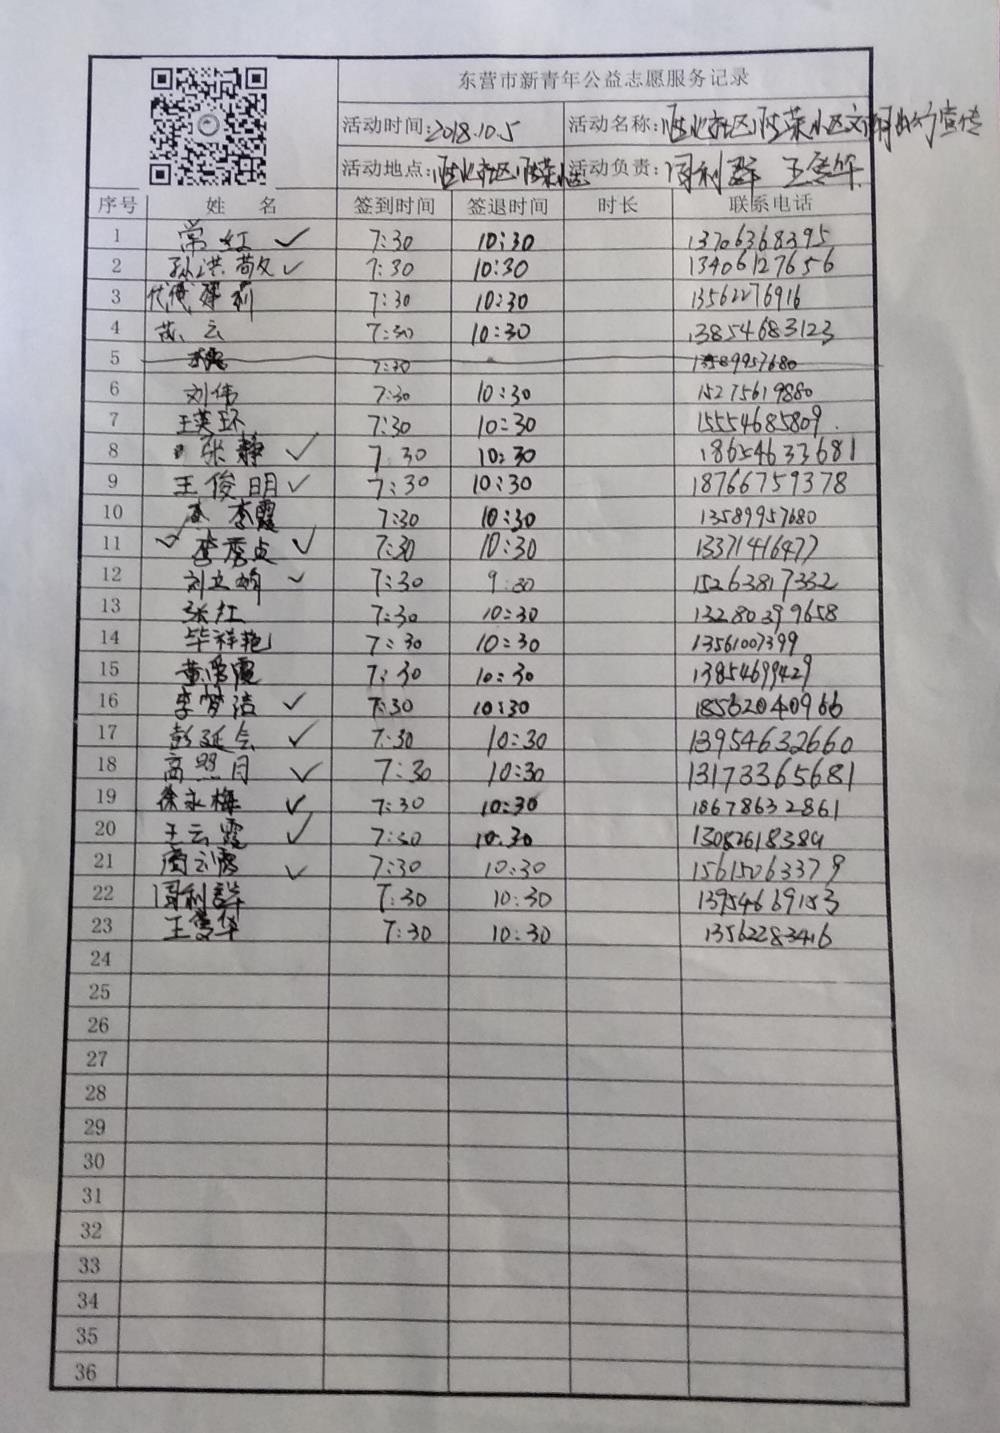 东营市新青年公益志愿服务记录
活动时间:2018.10.5 活动名称:
活动地点: 活动负责:周利群 王雪华
序号 姓 名 签到时间 签退时间 时长 联系电话
1 常红 ✓ 7:30 10:30 13706368395
2 孙洪敬 ✓ 7:30 10:30 13406127656
3 7:30 10:30 13562276916
4 云 7:30 10:30 13854683123
5 7:30 13589957680
6 刘伟 7:30 10:30 15275619880
7 王英环 7:30 10:30 15554685809
8 张静 ✓ 7:30 10:30 18654633681
9 王俊明 ✓ 7:30 10:30 18766759378
10 李霞 7:30 10:30 13589957680
11 ✓ 李秀贞 ✓ 7:30 10:30 13371416477
12 刘立娟 ✓ 7:30 9:30 15263817332
13 张红 7:30 10:30 13280399658
14 毕祥艳 7:30 10:30 13561007399
15 黄秀霞 7:30 10:30 13854699429
16 李梦洁 ✓ 7:30 10:30 18562040966
17 彭延会 ✓ 7:30 10:30 13954632660
18 高照月 ✓ 7:30 10:30 13173365681
19 徐永梅 ✓ 7:30 10:30 18678632861
20 王云霞 ✓ 7:30 10:30 13082618389
21 ✓ 7:30 10:30 15615063379
22 周利群 7:30 10:30 13954669153
23 王雪华 7:30 10:30 13562283416
24
25
26
27
28
29
30
31
32
33
34
35
36